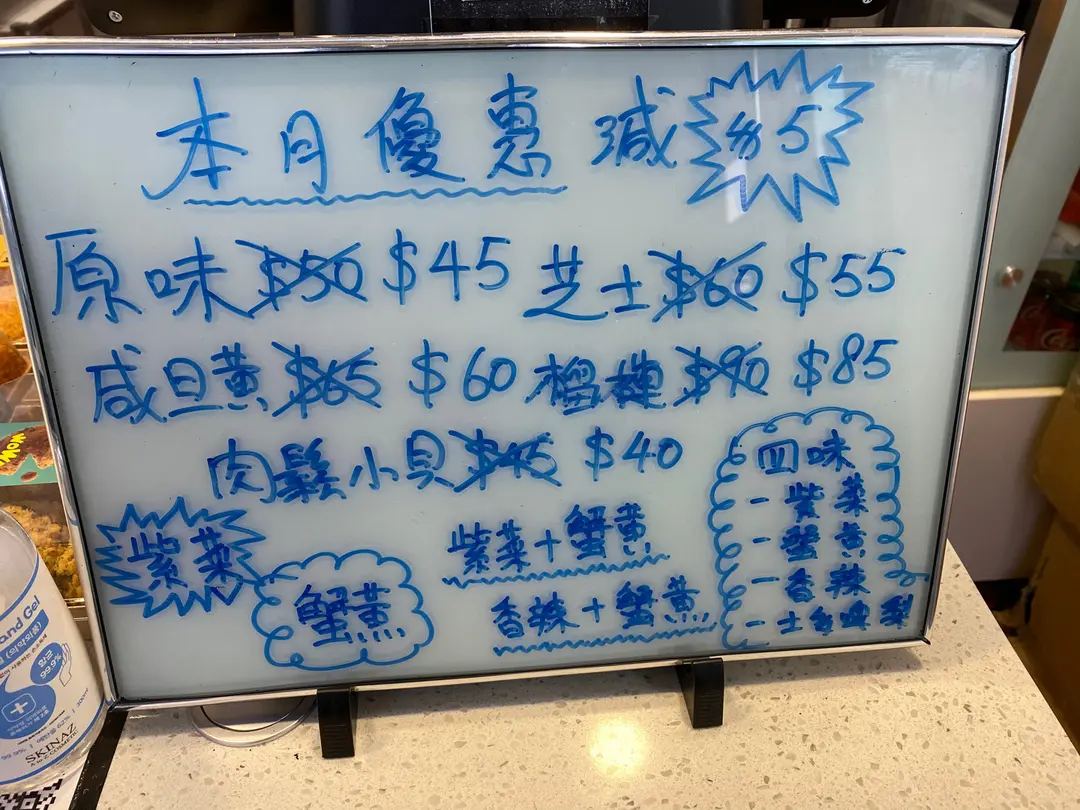 本月優惠 減 $5
原味 $50 $45 芝士 $60 $55
咸旦黄 $65 $60 榴槤 $90 $85
肉鬆小貝 $45 $40
紫菜
蟹黄
紫菜+蟹黄
香辣+蟹黄
四味
- 紫菜
- 蟹黄
- 香辣
- 士多啤梨
WOW
and Gel
(의약외품)
향균
99.6%
SKINAZ